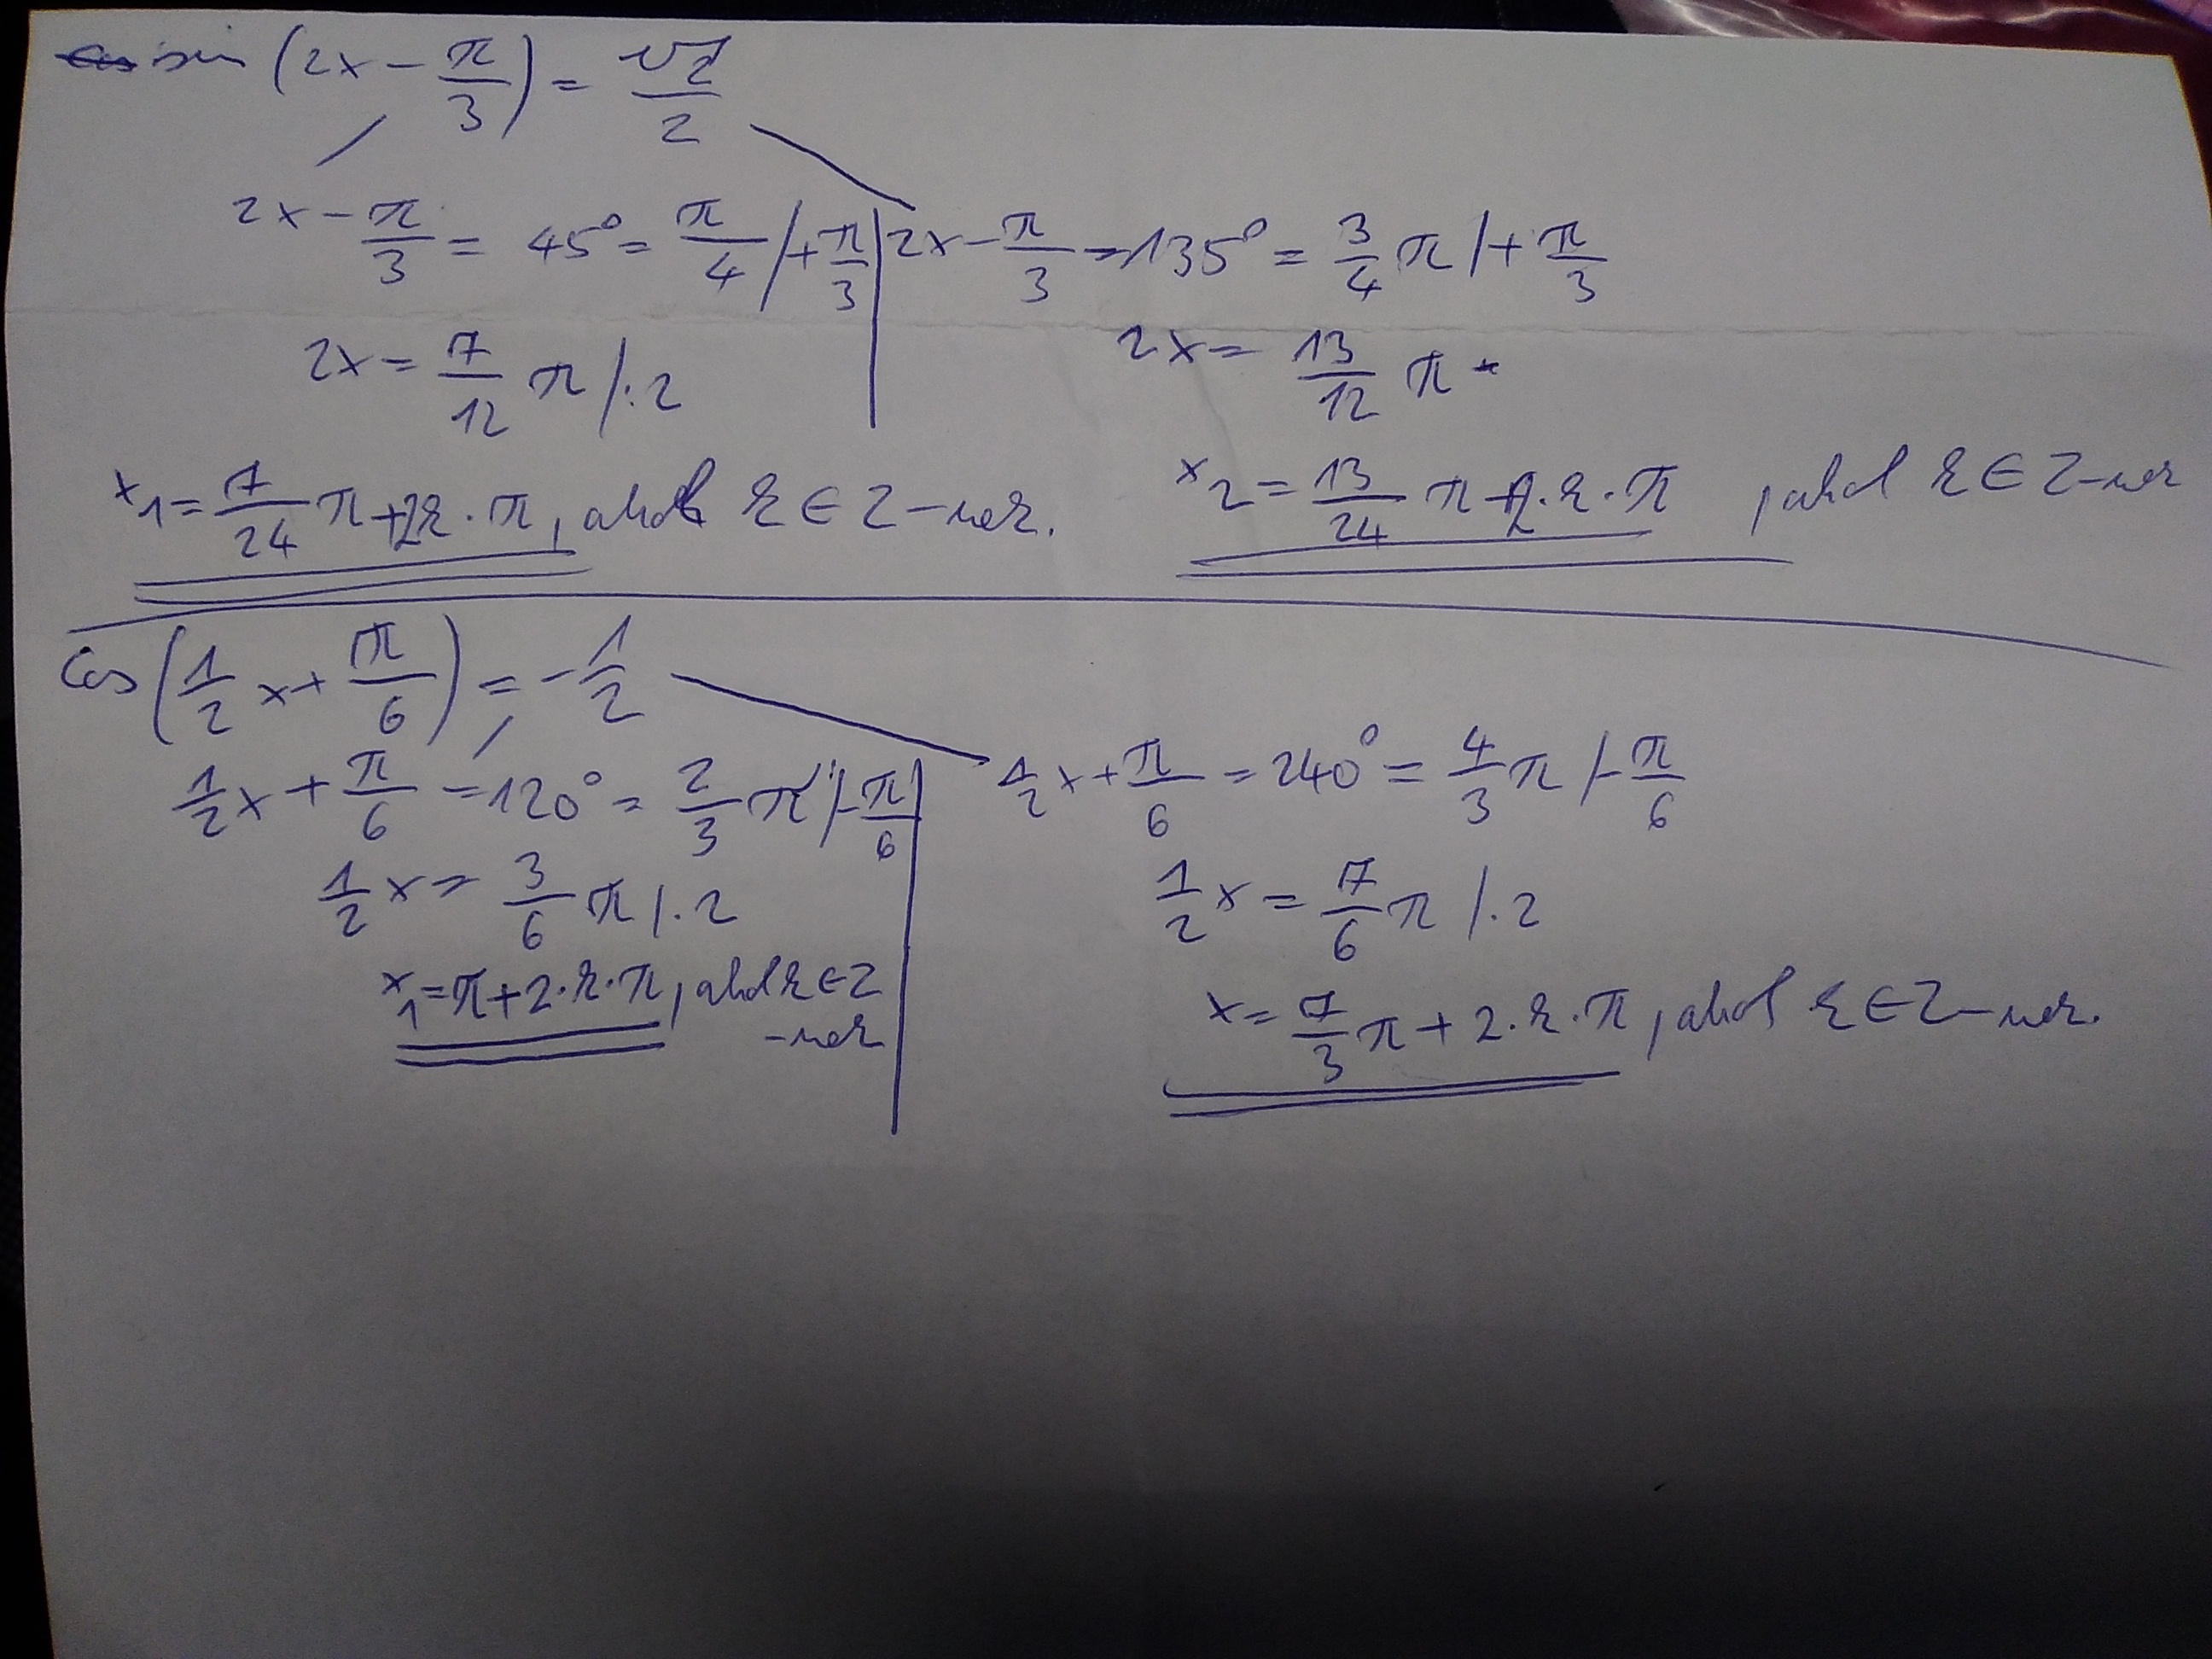 sin (2x - π/3) = √2/2
2x - π/3 = 45° = π/4 /+ π/3
2x = 7/12 π /:2
x₁ = 7/24 π + 2k·π, ahol k ∈ Z
2x - π/3 = 135° = 3/4 π /+ π/3
2x = 13/12 π
x₂ = 13/24 π + 2·k·π, ahol k ∈ Z
cos (1/2 x + π/6) = -1/2
1/2 x + π/6 = 120° = 2/3 π /- π/6
1/2 x = 3/6 π /·2
x₁ = π + 2·k·π, ahol k ∈ Z
1/2 x + π/6 = 240° = 4/3 π /- π/6
1/2 x = 7/6 π /·2
x = 7/3 π + 2·k·π, ahol k ∈ Z